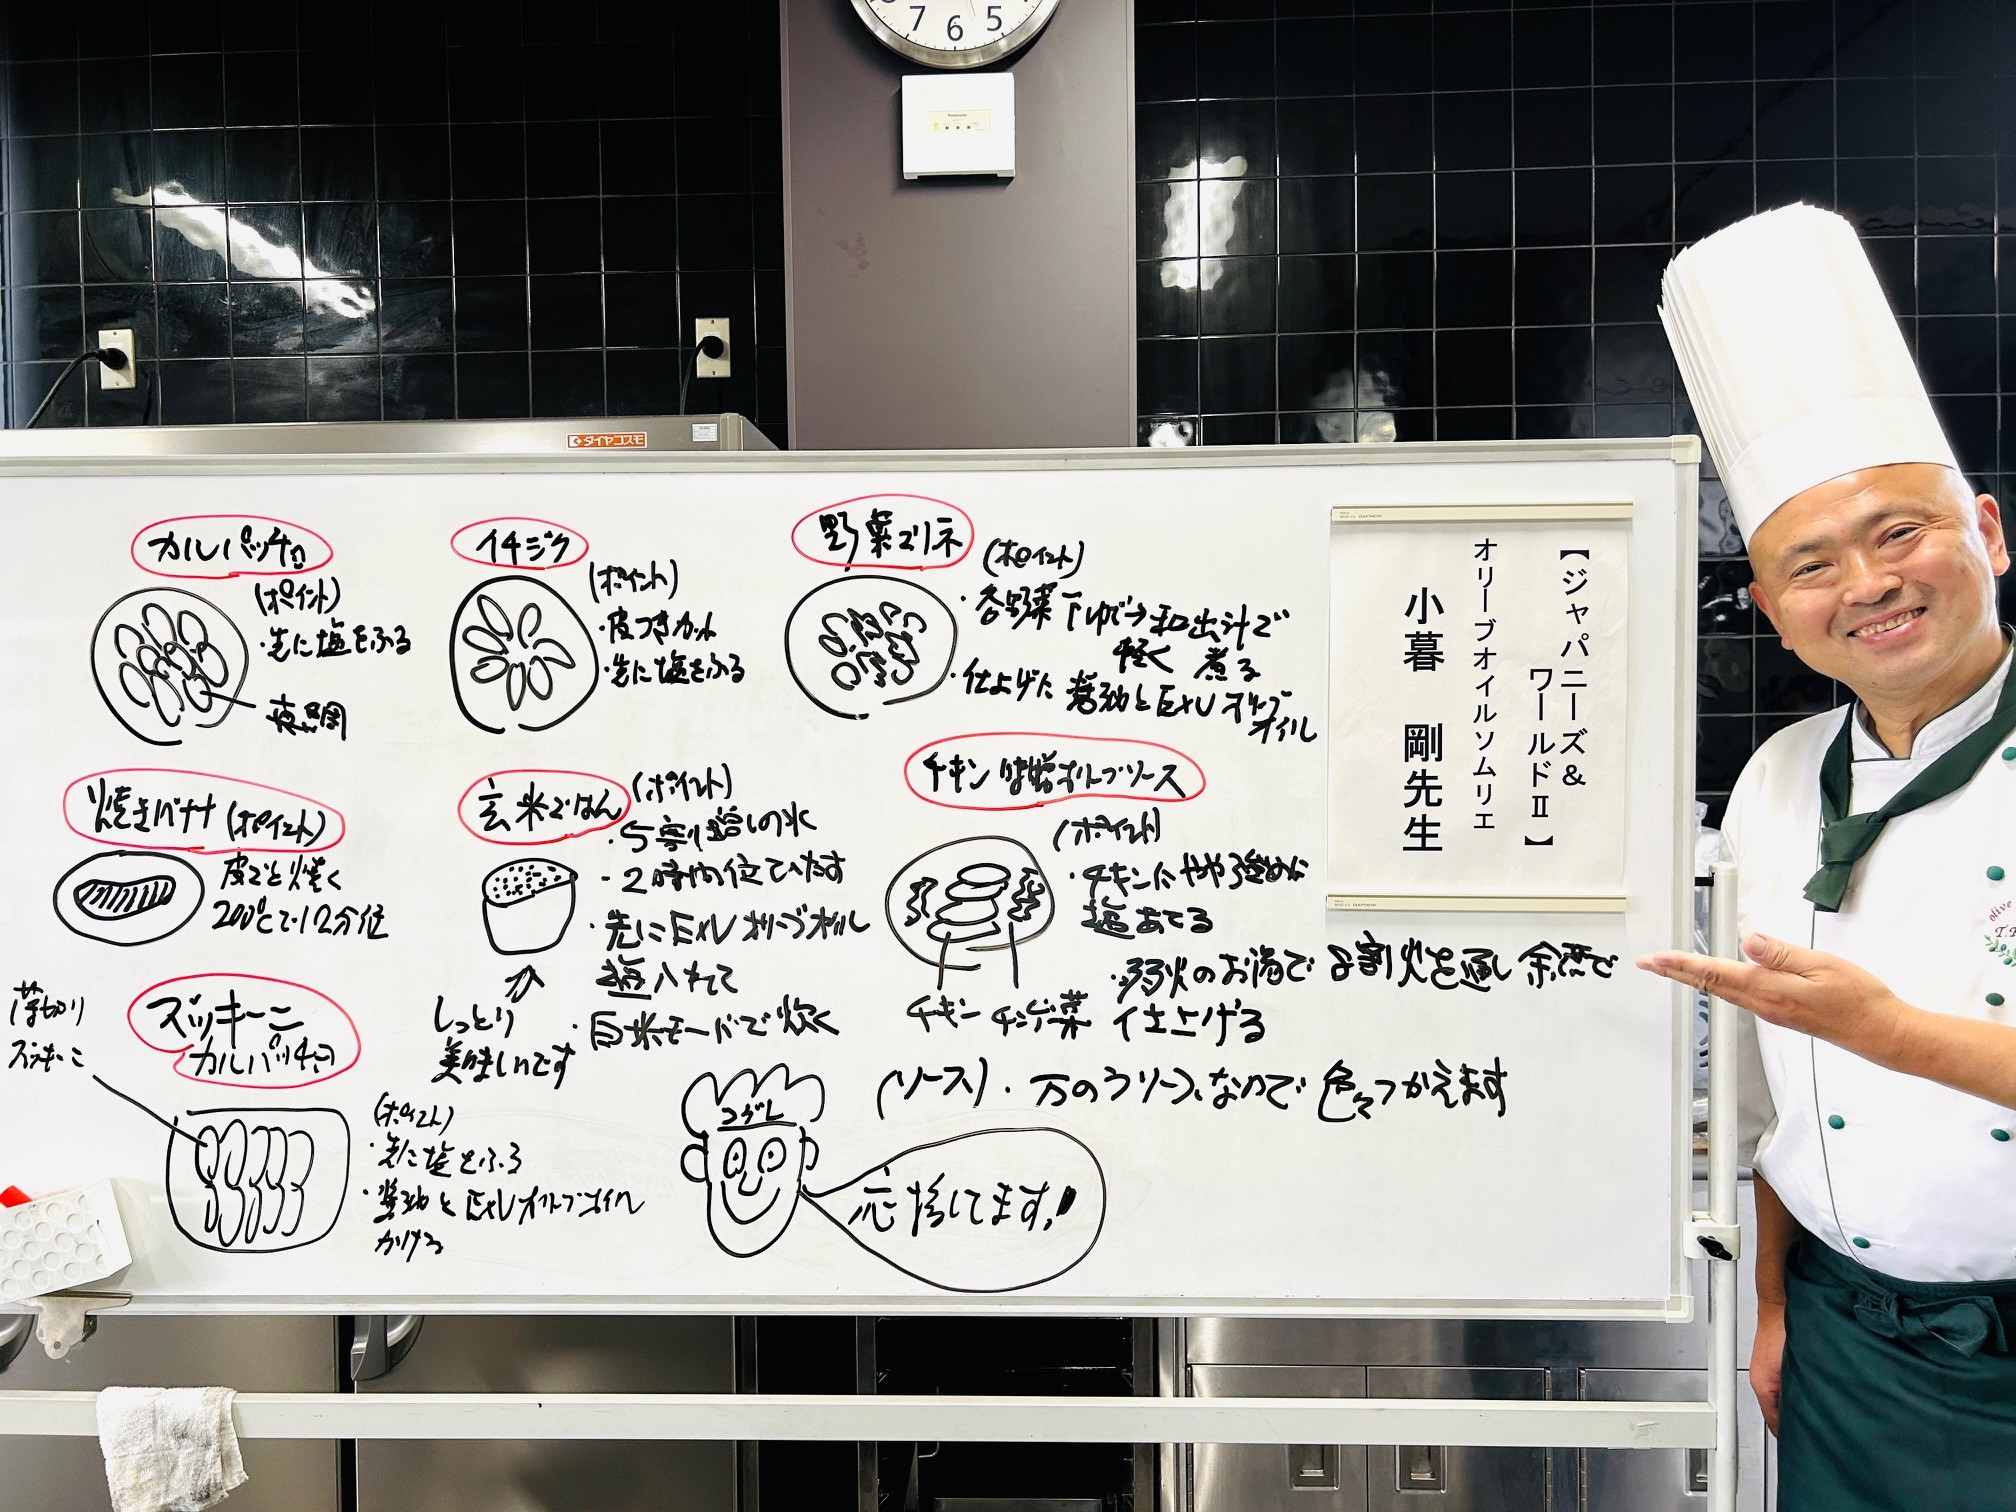 7 6 5
Panasonic
ダイヤコスモ
カルパッチョ
(ポイント)
・先に塩をふる
真鯛
イチジク
(ポイント)
・皮つきカット
・先に塩をふる
野菜マリネ
(ポイント)
・各野菜下ゆで→和出汁で
軽く煮る
・仕上げに醤油とEXVオリーブ
オイル
【ジャパニーズ&
ワールドⅡ】
オリーブオイルソムリエ
小暮 剛先生
焼きバナナ(ポイント)
皮ごと焼く
200℃で12分位
玄米ごはん
(ポイント)
・5割増しの水
・2時間位ひたす
・先にEXVオリーブオイル
塩入れて
・白米モードで炊く
しっとり
美味しいです
チキン味噌オリーブソース
(ポイント)
・チキンにやや強めに
塩あてる
・弱火のお湯で8割火を通し余熱で
仕上げる
チキン
チンゲン菜
(ソース)・万のうソースなので色々つかえます
ズッキーニ
カルパッチョ
薄切り
ズッキーニ
(ポイント)
・先に塩をふる
・醤油とEXVオリーブオイル
かける
コグレ
応援してます!
olive